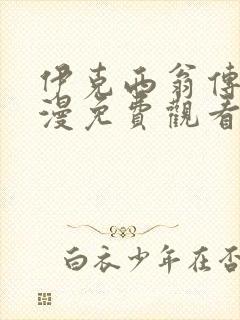 伊克西翁傳
漫免費觀看
白衣少年在否